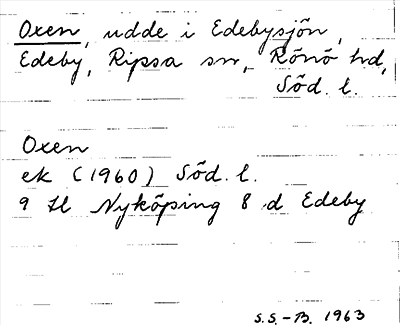 Oxen, udde i Edebysjön,
Edeby, Ripsa sn, Rönö hd,
Söd. l.
Oxen
ek (1960) Söd. l.
9 H Nyköping 8 d Edeby
S.S.-B. 1963